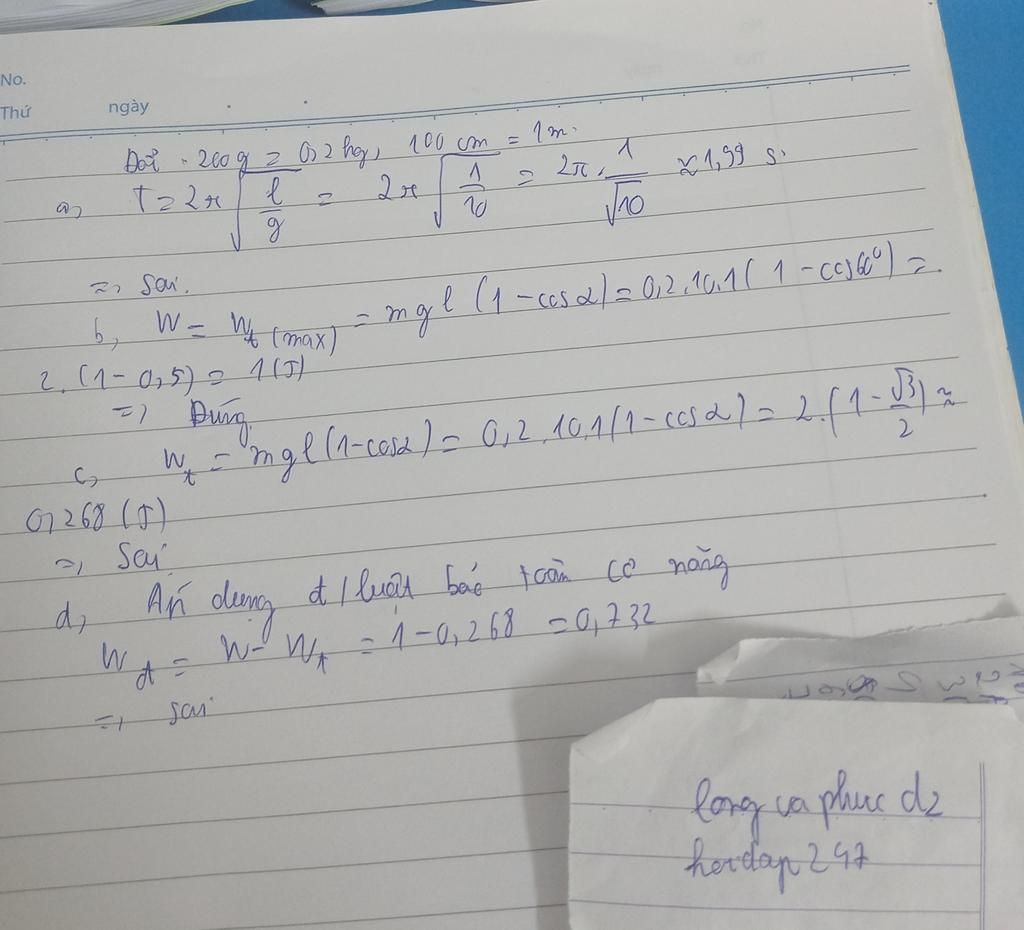 No.
Thứ ngày
Đổi . 200g = 0,2 kg, 100 cm = 1m.
a, T = 2π√(l/g) = 2π√(1/10) = 2π . 1/√10 ≈ 1,99 s.
=> Sai.
b, W = Wt (max) = mgl (1 - cosα) = 0,2.10.1 (1 - cos60°) =
2. (1 - 0,5) = 1 (J)
=> Đúng.
c, Wt = mgl (1 - cosα) = 0,2.10.1 (1 - cosα) = 2. (1 - √3/2) ≈
0,268 (J)
=> Sai
d, Áp dụng đ/luật bảo toàn cơ năng
Wđ = W - Wt = 1 - 0,268 = 0,732
=> sai
long va phuc dz
hoidap 247